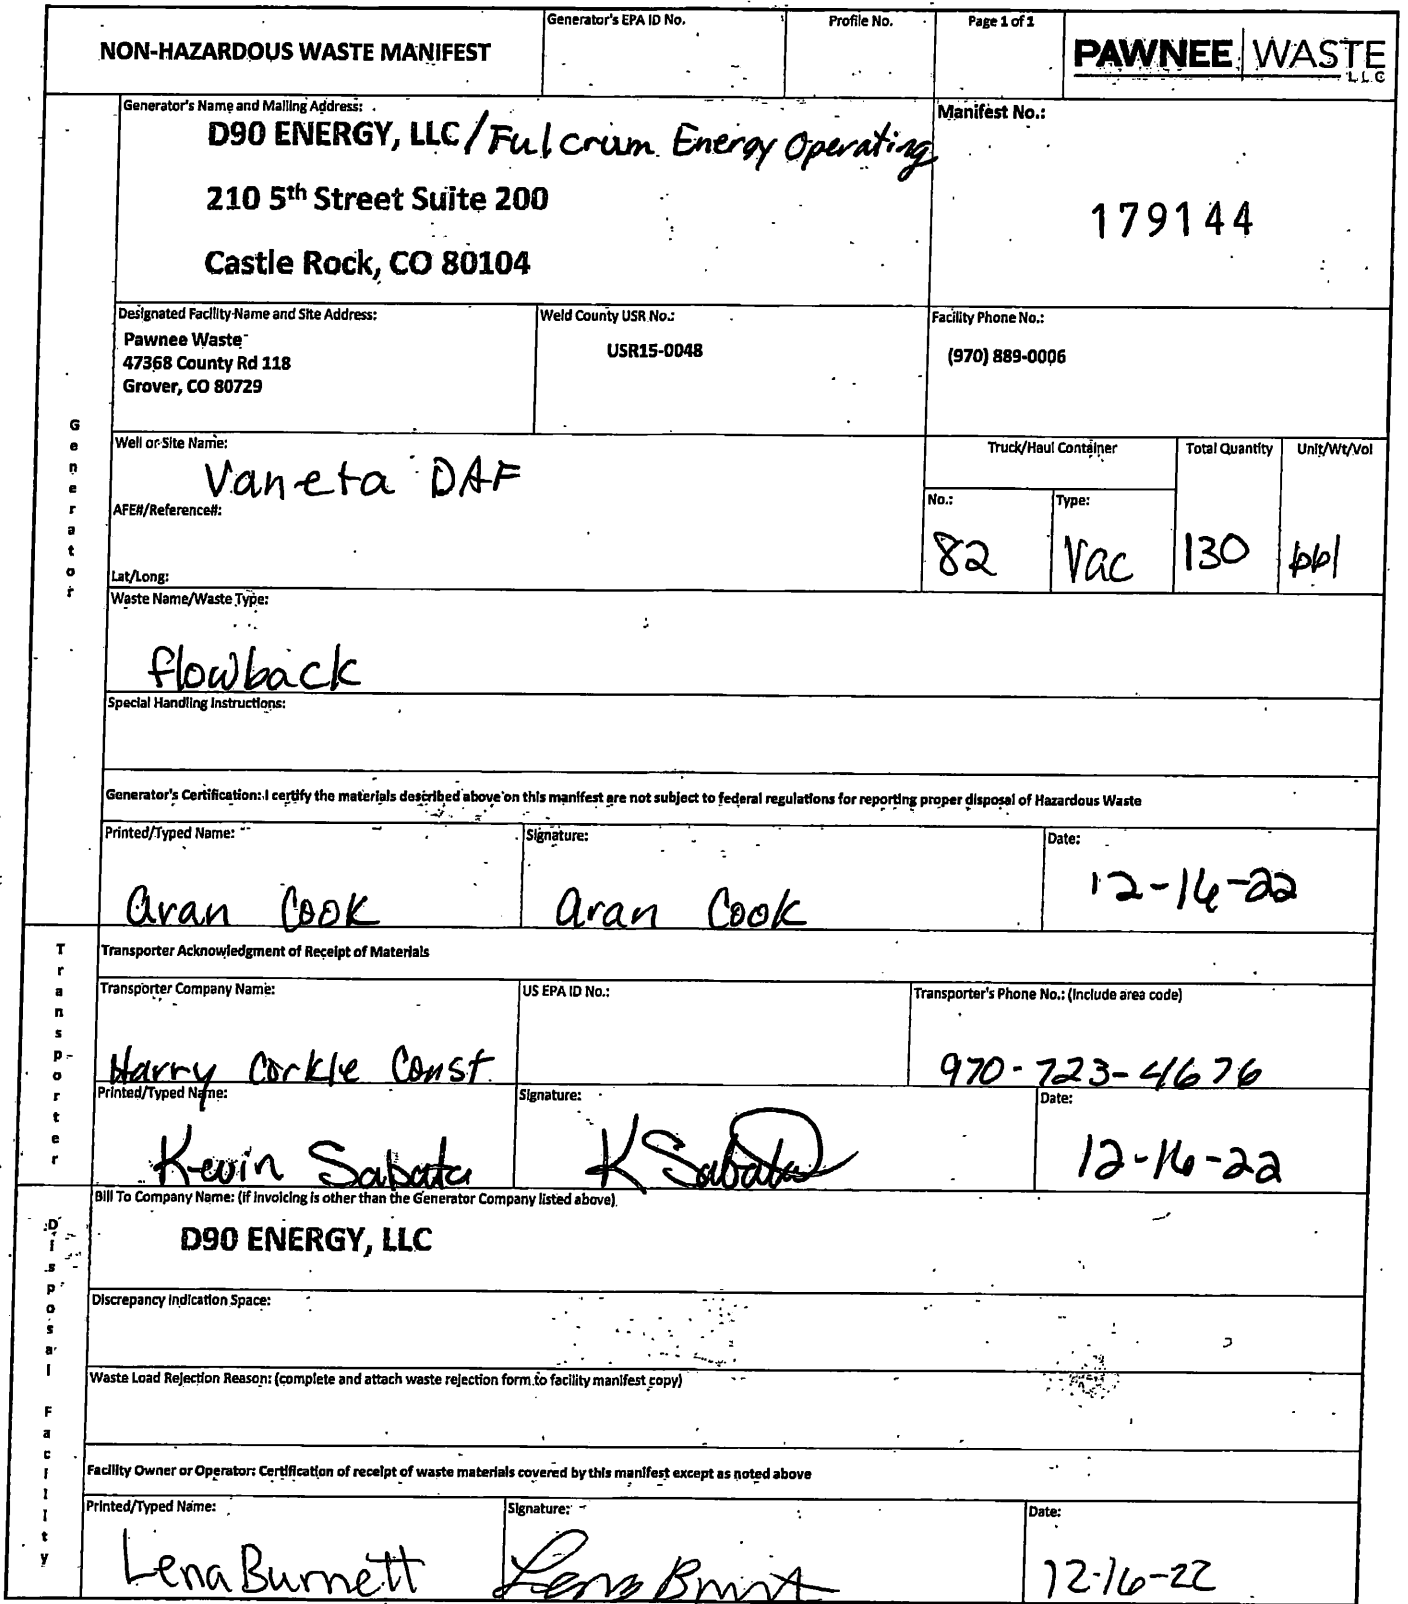 NON-HAZARDOUS WASTE MANIFEST
Generator's EPA ID No.
Profile No.
Page 1 of 1
PAWNEE WASTE
LLC
Generator's Name and Mailing Address:
D90 ENERGY, LLC / Fulcrum Energy Operating
210 5th Street Suite 200
Castle Rock, CO 80104
Manifest No.:
179144
Designated Facility Name and Site Address:
Pawnee Waste
47368 County Rd 118
Grover, CO 80729
Weld County USR No.:
USR15-0048
Facility Phone No.:
(970) 889-0006
Generator
Well or Site Name:
Vaneta DAF
AFE#/Reference#:
Lat/Long:
Truck/Haul Container
No.:
82
Type:
Vac
Total Quantity
130
Unit/Wt/Vol
bbl
Waste Name/Waste Type:
flowback
Special Handling Instructions:
Generator's Certification: I certify the materials described above on this manifest are not subject to federal regulations for reporting proper disposal of Hazardous Waste
Printed/Typed Name:
Aran Cook
Signature:
Aran Cook
Date:
12-16-22
Transporter
Transporter Acknowledgment of Receipt of Materials
Transporter Company Name:
Harry Corkle Const.
US EPA ID No.:
Transporter's Phone No.: (include area code)
970-723-4676
Printed/Typed Name:
Kevin Sabata
Signature:
K Sabata
Date:
12-16-22
Disposal Facility
Bill To Company Name: (if invoicing is other than the Generator Company listed above)
D90 ENERGY, LLC
Discrepancy Indication Space:
Waste Load Rejection Reason: (complete and attach waste rejection form to facility manifest copy)
Facility Owner or Operator: Certification of receipt of waste materials covered by this manifest except as noted above
Printed/Typed Name:
Lena Burnett
Signature:
Lena Burnett
Date:
12-16-22